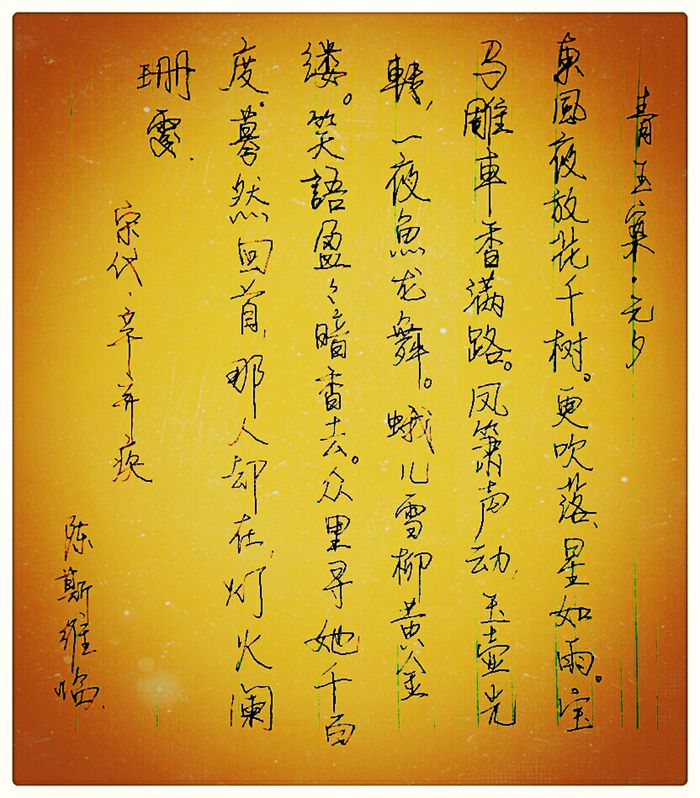 青玉案·元夕
東風夜放花千树。更吹落、星如雨。宝
马雕車香满路。凤箫声动,玉壶光
轉,一夜魚龙舞。蛾儿雪柳黄金
缕。笑語盈々暗香去。众里寻她千百
度。蓦然回首,那人却在,灯火阑
珊處.
宋代·辛弃疾
陈斯维临.